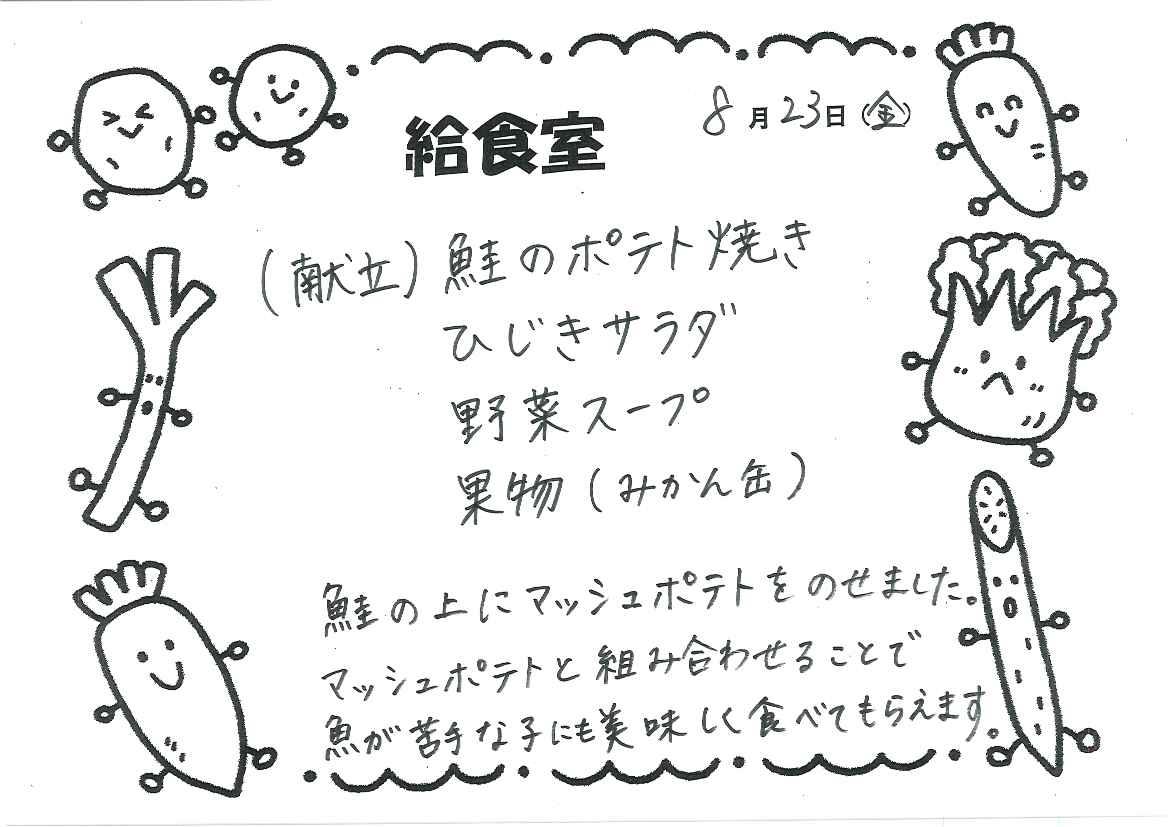 給食室
8月23日(金)
(献立)鮭のポテト焼き
ひじきサラダ
野菜スープ
果物(みかん缶)
鮭の上にマッシュポテトをのせました。
マッシュポテトと組み合わせることで
魚が苦手な子にも美味しく食べてもらえます。